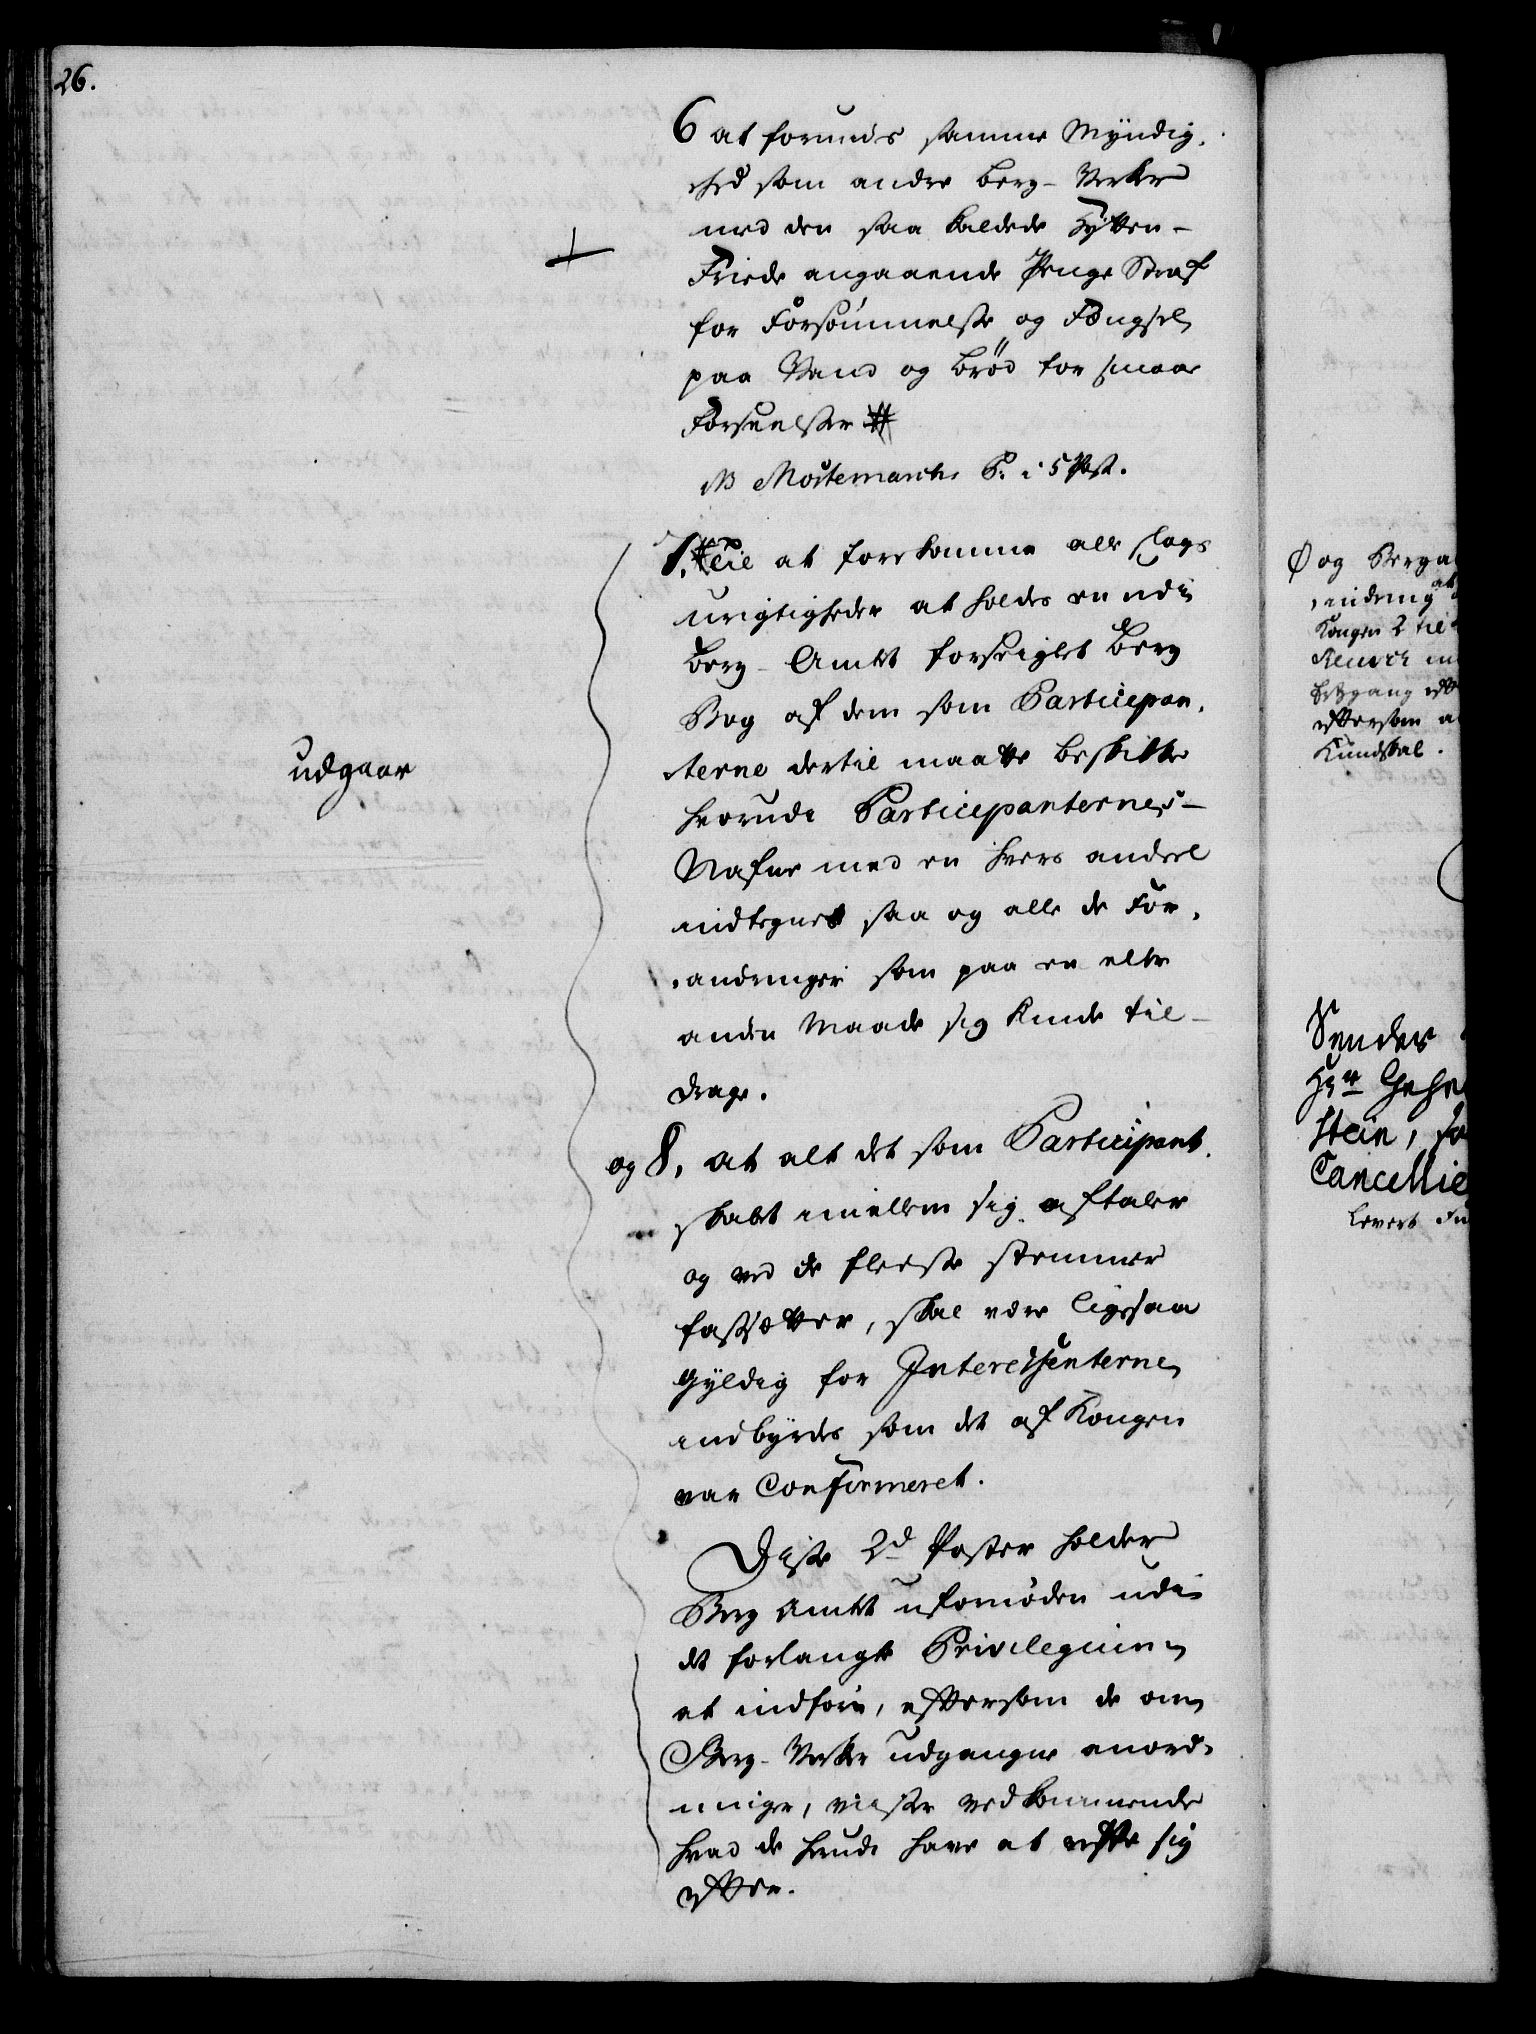 26.
6 at forunde samme Myndig-
hed som andre Berg-Verker
med den saa kaldede Hytten-
Friede angaaende Penge Straf
for Forsömmelse og Fængsel
paa Vand og Bröd for smaae
Forseelser #
NB i 5 Post.
7. #Til at forekomme alle slags
urigtigheder at holdes en udi
Berg-Amtet forseiglet Berg
Bog af dem som Participan-
terne dertil maatte beskikke
hvorudi Participanternes
Nafne med en hvers andeel
indtegnet saa og alle de For-
andringer som paa en eller
anden Maade sig kunde til-
drage.
udgaar
og 8. at alt det som Participant-
skabet imellem sig aftaler
og ved de fleeste stemmer
fastsetter, skal være ligesaa
gyldig for Interessenterne
indbyrdes som det af Kongen
var Confirmeret.
Disse 2de Poster holder
Berg Amtet ufornöden udi
det forlangte Privilegium
at indföre, eftersom de om
Berg-Verker udgangne anord-
ninger, viiser vedkommende
hvad de herudi have at rette sig
efter.
Ø og Berga
Kongen 2 til
eftersom a
Kundskab.
Sendes
Hr Gehe
stein, so
Cancellie